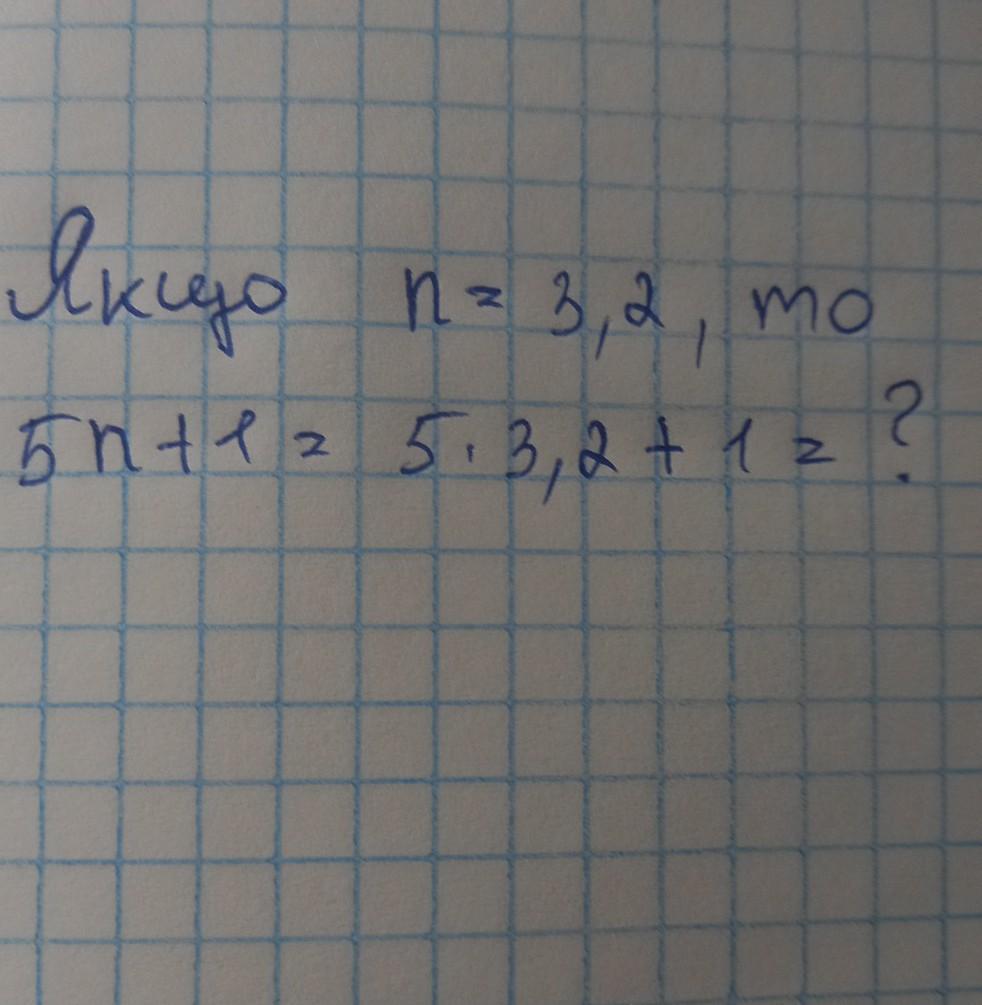 Якщо n = 3,2, то
5n + 1 = 5 · 3,2 + 1 = ?